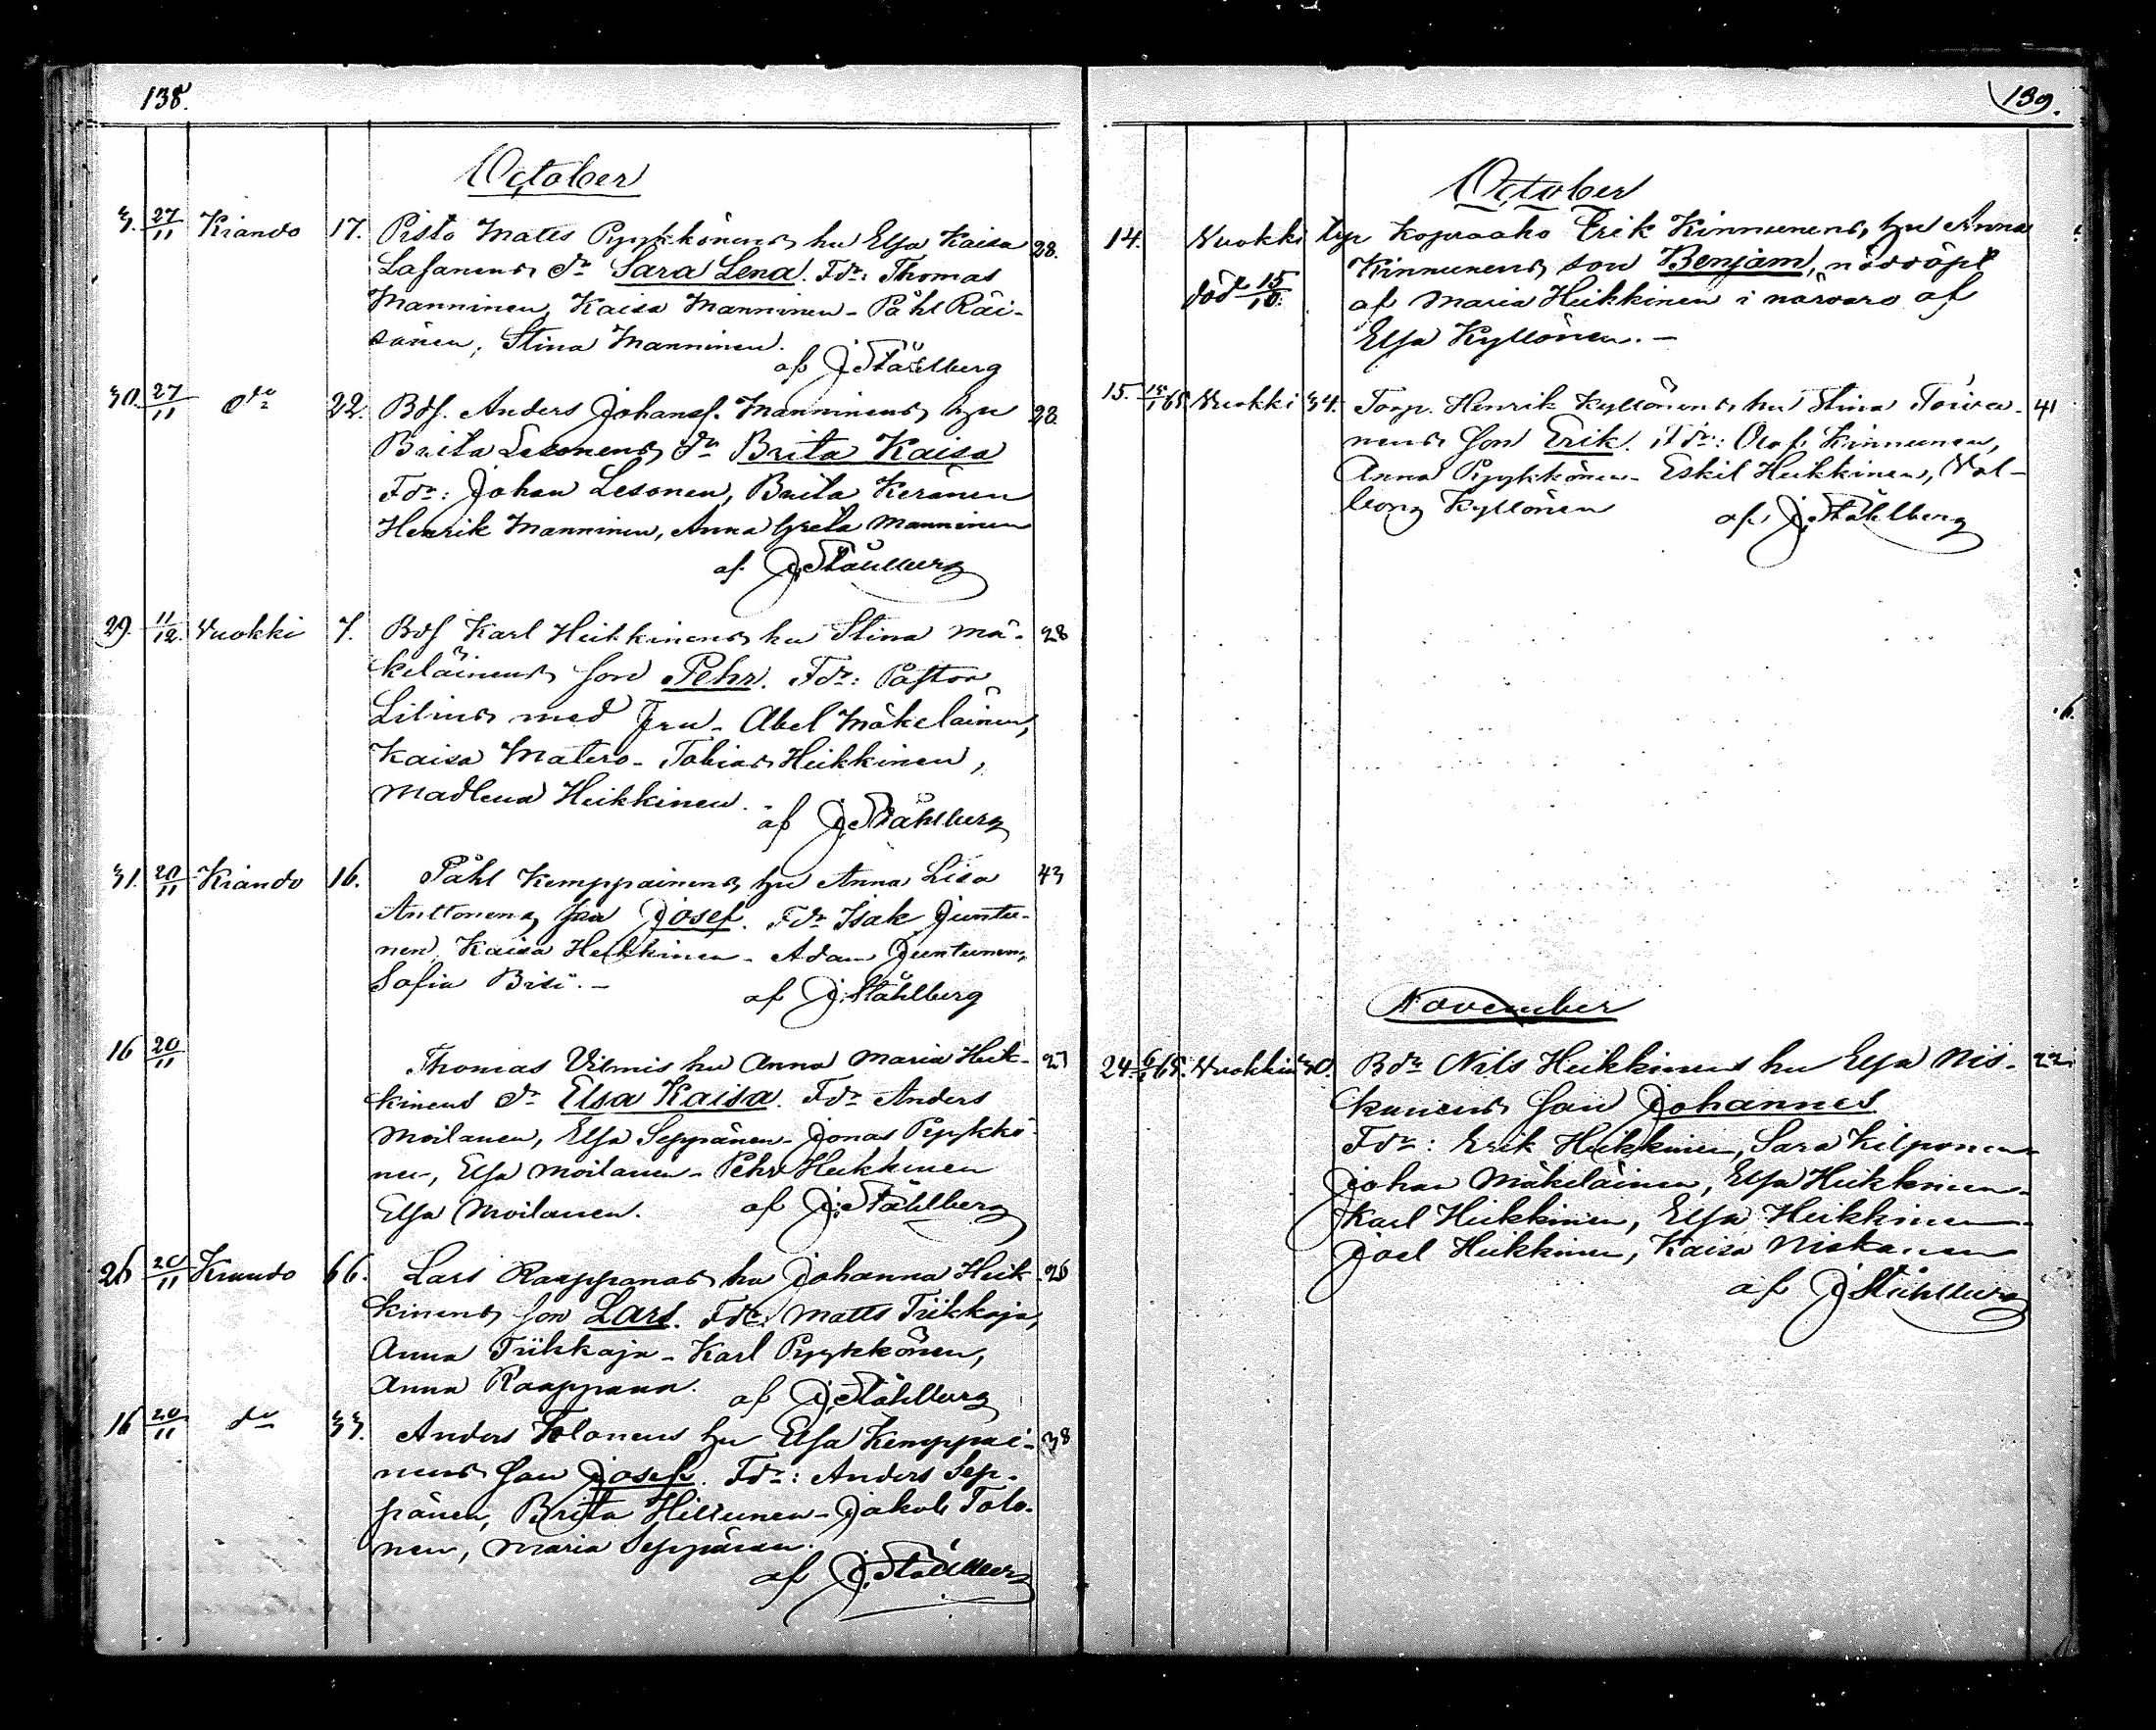 138.
October
3. 27/11 Kiando 17. Pisto Matts Pyykkönens hu Elsa Kaisa 28.
Lasanens dr Sara Lena. Fdr: Thomas
Manninen, Kaisa Manninen - Påhl Räi-
sänen, Stina Manninen.
af J. Ståhlberg
30 27/11 do 22. Bdf. Anders Johansf. Manninens hu 28.
Brita Lesonens dr Brita Kaisa
Fdr: Johan Lesonen, Brita Keränen
Henrik Manninen, Anna Greta Manninen
af J. Ståhlberg
29. 11/12 Vuokki 7. Bdf Karl Heikkinens hu Stina Mä- 28
keläinens son Pehr. Fdr: Pastor
Lilius med Fru - Abel Mäkeläinen,
Kaisa Matero - Tobias Heikkinen,
Madlena Heikkinen.
af J. Ståhlberg
31. 20/11 Kiando 16. Påhl Kemppainens hu Anna Lisa 43
Anttonens son Josef. Fdr Isak Juntu-
nen, Kaisa Heikkinen - Adam Juntunen,
Sofia Brisi. -
af J. Ståhlberg
16 20/11 Thomas Vilmis hu Anna Maria Heik- 27
kinens dr Elsa Kaisa. Fdr Anders
Moilanen, Elsa Seppänen - Jonas Pyykkö-
nen, Elsa Moilanen - Pehr Heikkinen
Elsa Moilanen. af J. Ståhlberg
26 20/11 Kiando 66. Lars Raappanas hu Johanna Heik- 26
kinens son Lars. Fdr: Matts Tiikkaja,
Anna Tiikkaja - Karl Pyykkönen,
Anna Raappana. af J. Ståhlberg
16 20/11 do 33. Anders Tolonens hu Elsa Kemppai- 38
nens son Josef. Fdr: Anders Sep-
pänen, Brita Hiltunen - Jakob Tolo-
nen, Maria Seppänen.
af J. Ståhlberg
139.
October
14. Vuokki Erik Kinnunens, hu Anna
död 15/10. Kinnunens son Benjam, nöddöpt
af Maria Heikkinen i närvaro af
Elsa Kyllönen. -
15. 15/1 65 Vuokki 34. Torp. Henrik Kyllönens hu Stina Toiva- 41
nens son Erik. Fdr: Olof Kinnunen,
Anna Pyykkönen - Eskil Heikkinen, Val-
borg Kyllönen af J. Ståhlberg
November
24. 6/1 65. Vuokki 30. Bdr Nils Heikkinens hu Elsa Nis- 22
kanens son Johannes
Fdr: Erik Heikkinen, Sara Kilponen -
Johan Mäkeläinen, Elsa Heikkinen -
Karl Heikkinen, Elsa Heikkinen -
Joel Heikkinen, Kaisa Niskanen
af J. Ståhlberg